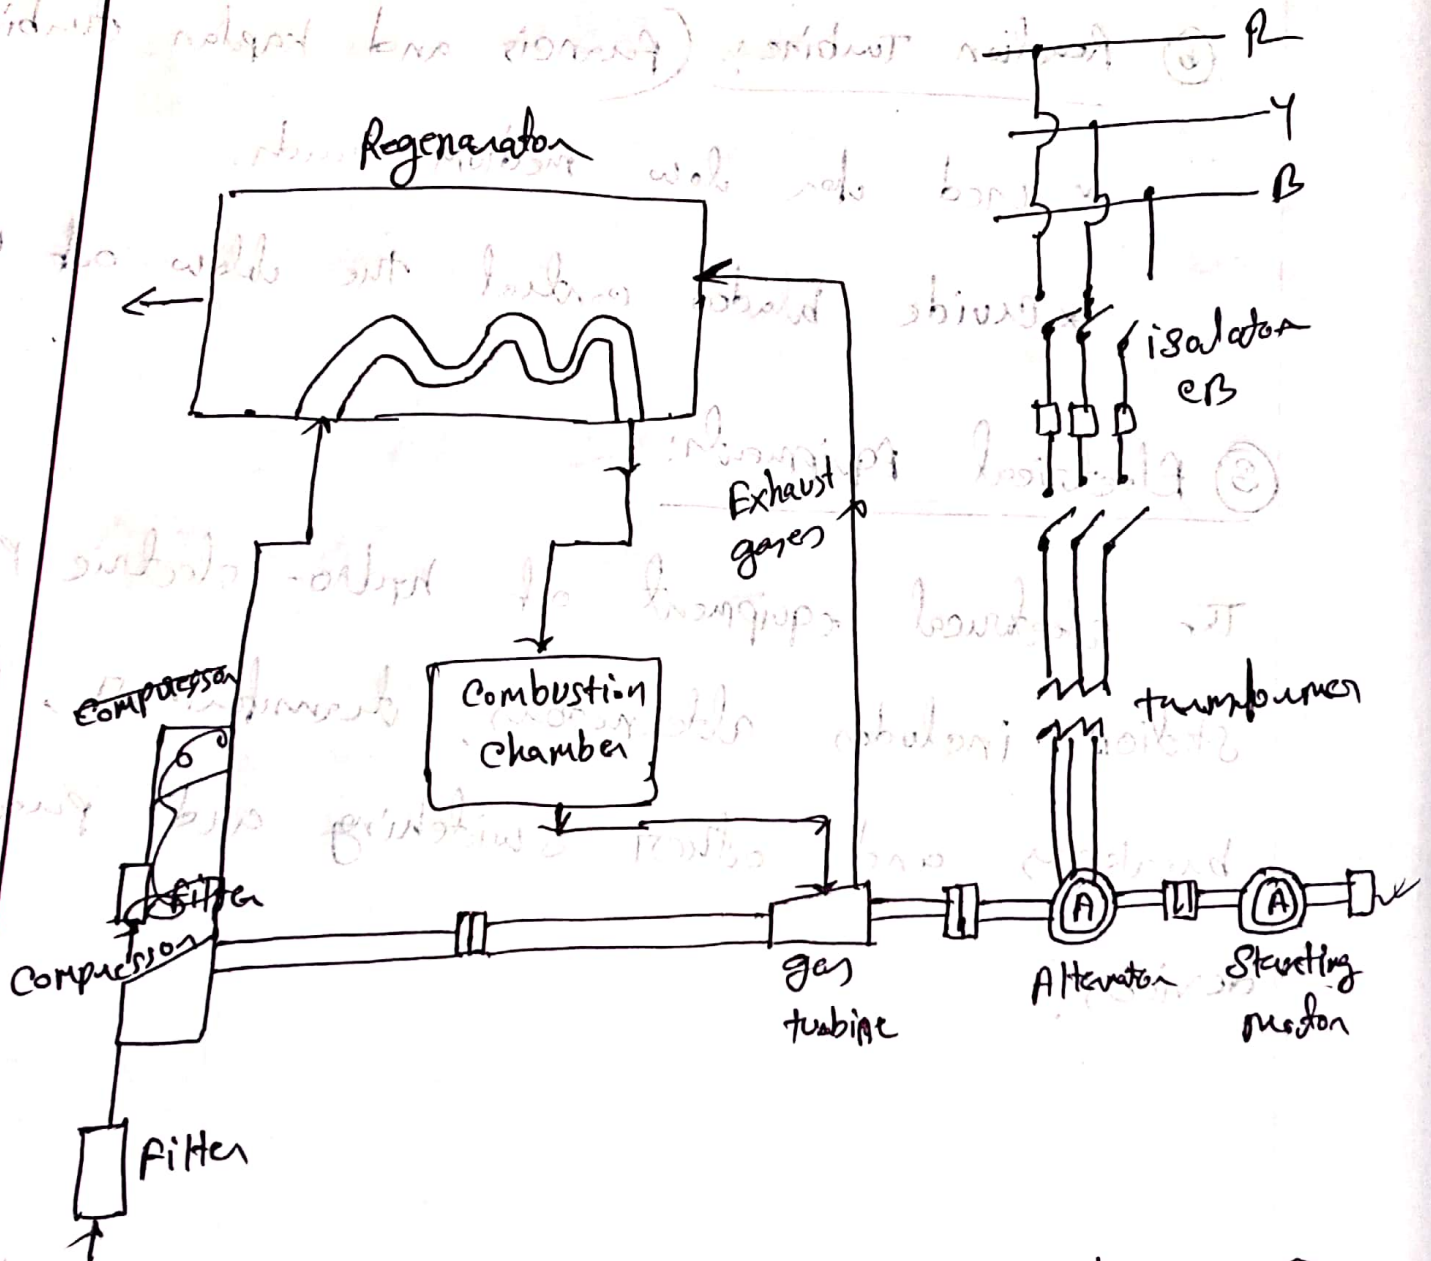 R
Y
B
Regenerator
isolator
CB
Exhaust
gases
Compressor
Combustion
Chamber
transformer
Filter
Compressor
A
A
gas
turbine
Alternator
Starting
motor
Filter